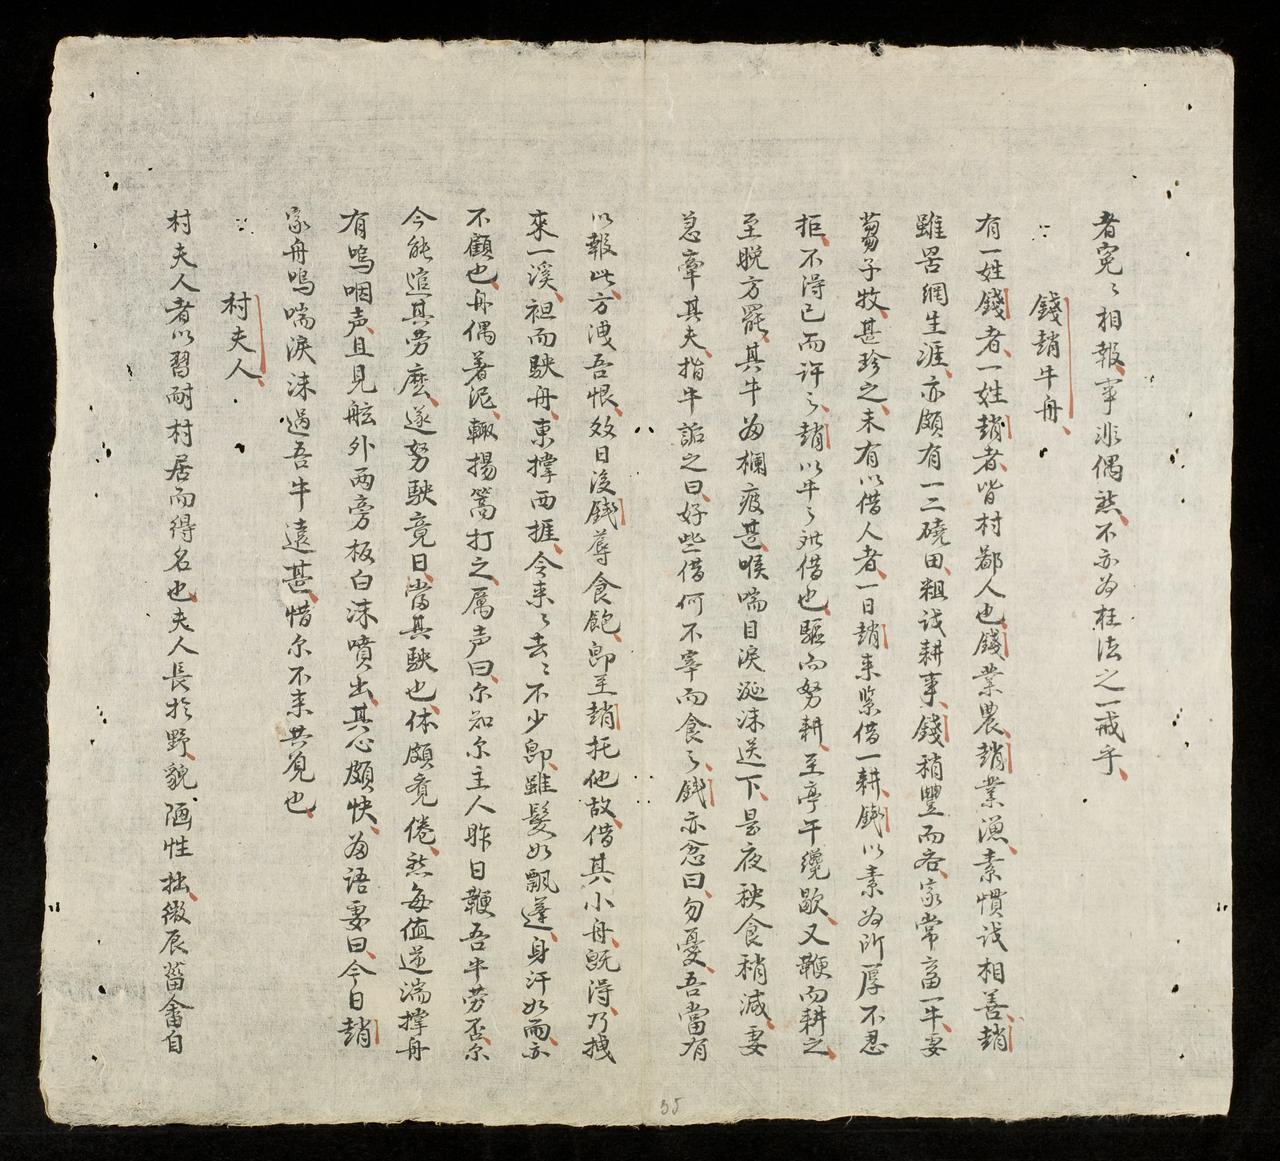 者寃々相報事非偶然不亦为枉法之一戒乎
錢趙牛舟
有一姓錢者一姓趙者皆村鄙人也錢業農趙業漁素慣話相善趙
雖罟網生涯亦頗有一二磽田粗諳耕事錢稍豐而吝家常畜一牛妻
蒭子牧甚珍之未有以借人者一日趙来監借一耕錢以素为所厚不忍
拒不得已而許之趙以牛之非借也驅而努耕至亭午纔歇又鞭而耕之
至晩方罷其牛为欄疲甚喉喘目淚涎沫送下是夜秧食稍減妻
忽牽其夫指牛詬之曰好些借何不宰而食之錢亦忿曰勿憂吾當有
以報此方洩吾恨效日後錢蓐食飽卽至趙托他故借其小舟旣得乃拽
來一溪袒而駛舟東撑西捱令来々去々不少卽雖髮如飄蓬身汗如雨亦
不顧也舟偶著泥輒揚篙打之厲声曰尔知尔主人昨日鞭吾牛劳否尔
今能逭其劳麽遂努駛竟日當其駛也体頗竟倦然每值逆湍撑舟
有嗚咽声且見舷外兩旁板白沫噴出其心頗快为語妻曰今日趙
家舟嗚喘淚沫過吾牛遠甚惜尔不来共覓也
村夫人
村夫人者以習耐村居而得名也夫人長於野貌陋性拙微辰菑畬自
35